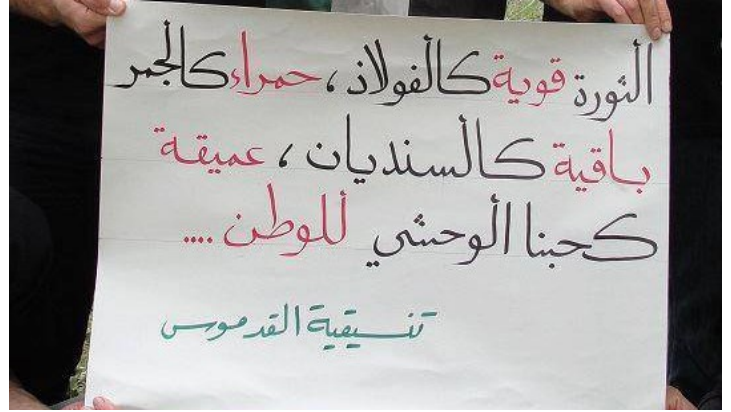 الثورة قوية كالفولاذ، حمراء كالجمر
باقية كالسنديان، عميقة
كحبنا الوحشي للوطن ....
تنسيقية القدموس